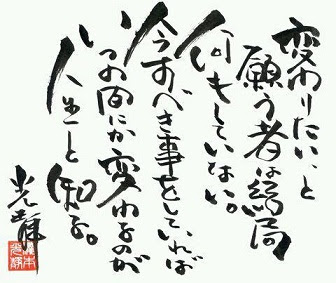 変わりたい、と
願う者は結局
何もしていない。
今すべき事をしていれば
いつの間にか変わるのが
人生と知る。